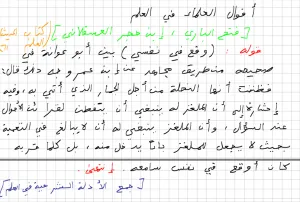 أقوال العلماء في العلم
[فتح الباري، ابن حجر العسقلاني] كتاب
قوله : (وقع في نفسي) بين أبو عوانة في
صحيحه من طريق مجاهد عن ابن عمر وجه ذلك قال:
فظننت أنها النخلة من أجل الجمار الذي أتي به، وفيه
إشارة إلى أن الملغز له ينبغي أن يتفطن لقرائن الأقوال
عند السؤال، وأن الملغز ينبغي له أن لا يبالغ في التعمية
بحيث لا يجعل للملغز بابا يدخل منه، بل كلما قربه
كان أوقع في نفس سامعه. إنتهى
[جمع الأدلة الشرعية في العلم]